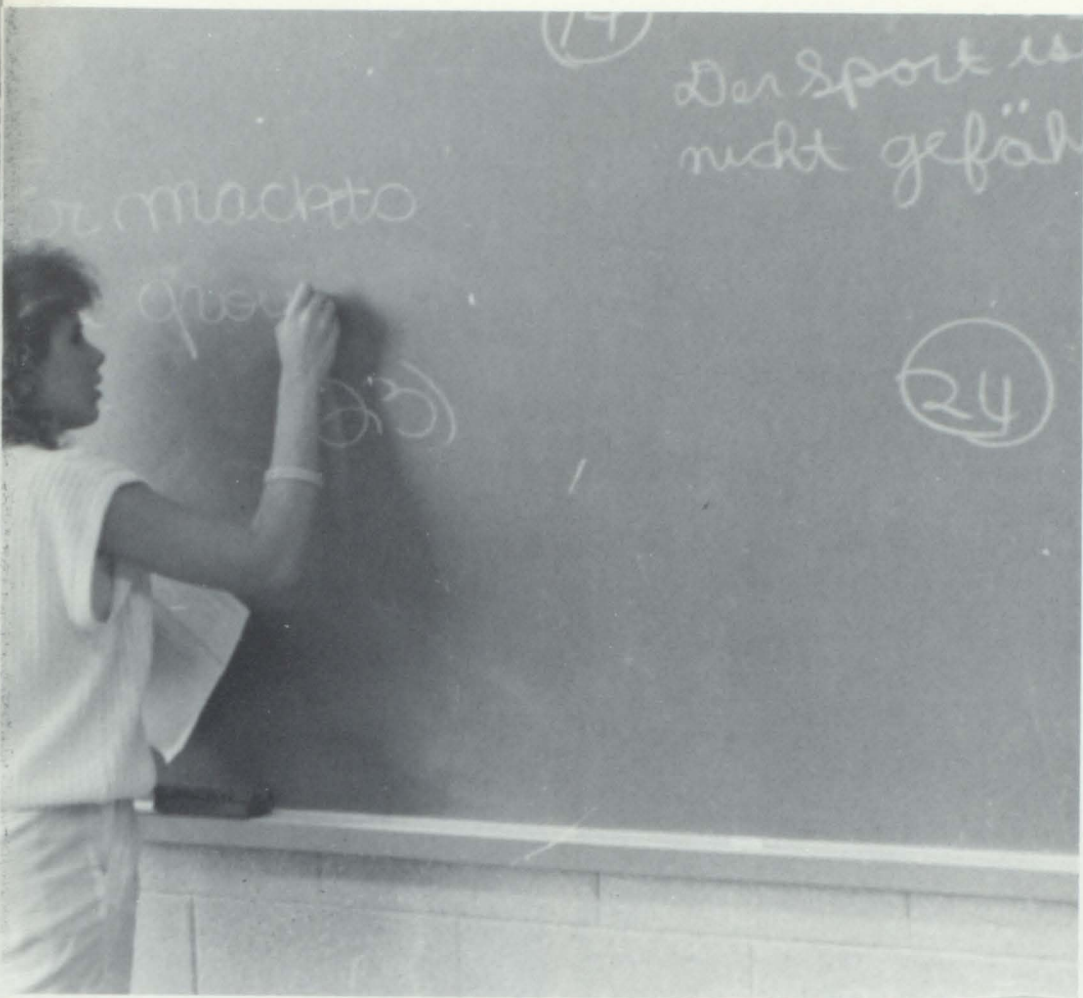 14
Der Sport is
nicht gefäh
machts
23
24